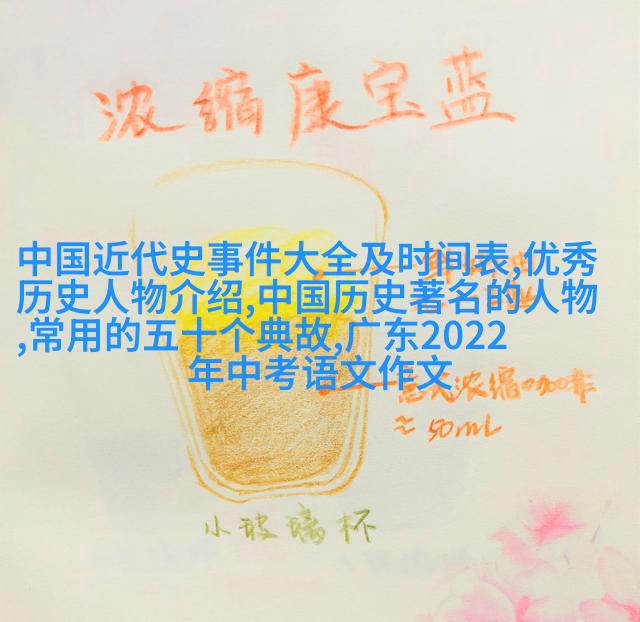 浓缩康宝蓝
中国近代史事件大全及时间表,优秀
历史人物介绍,中国历史著名的人物
,常用的五十个典故,广东2022
年中考语文作文
浓缩咖啡
≈ 50mL
小玻璃杯